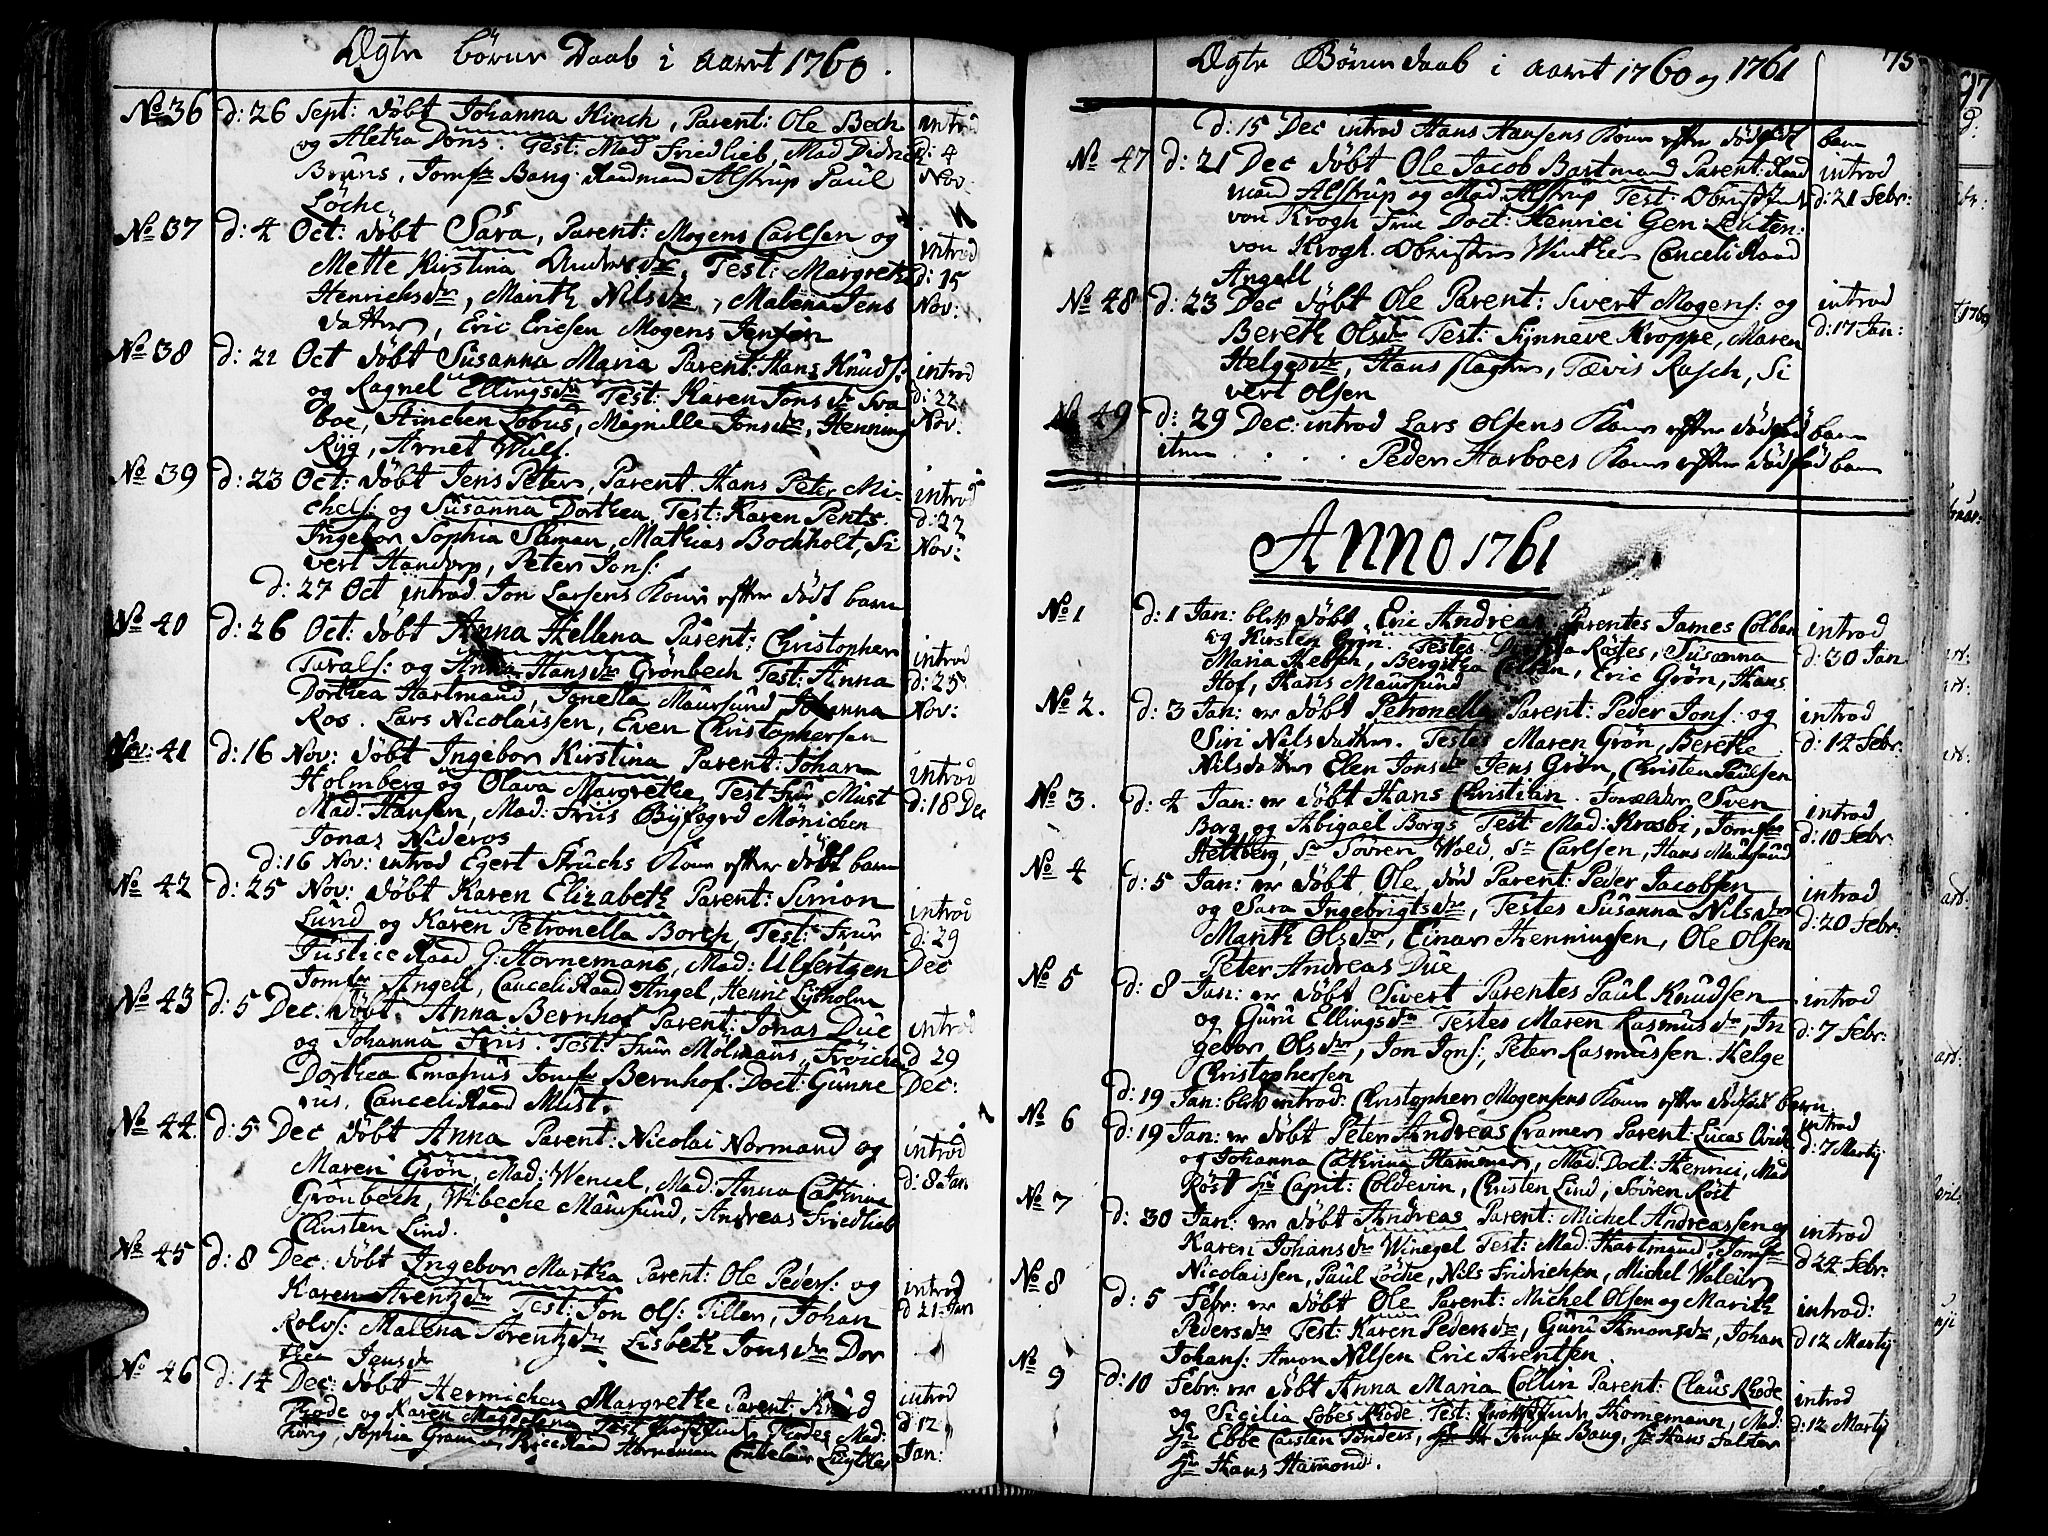 Ægte børns Daab i aaret 1760.
No 36 d: 26 Sept: døbt Johanna Hinch, Parent: Ole Bech introd
og Aletha Dons. Test: Mad Friedlieb, Mad Didric d: 4
Bruns, Jomfr Bang Raadmand Alstrup Paul Nov:
Löche
No 37 d: 4 Oct: døbt Sara, Parent: Mogens Carlsen og introd
Mette Kirstina Andersdr, Test: Margrete d: 15
Henrichsdr, Marith Nilsdr, Malena Jens Nov:
datter, Eric Ericsen Mogens Jensen
No 38 d: 22 Oct døbt Susanna Maria Parent: Hans Knuds: introd
og Ragnel Ellingsdr Test: Karen Jonsdr Sva d: 22
boe, Hinchen Lobus, Magnille Jonsdr, Henning Nov.
Ryg, Arnet Wulf.
No 39 d: 23 Oct: døbt Jens Peter, Parent Hans Peter Mi- introd
chels: og Susanna Dorthea, Test: Karen Pents d: 27
Ingebor Sophia Sliman, Mathias Bochholt, Si Nov:
vert Handorp, Peter Jons:
d: 27 Oct introd Jon Larsens Kone efter dødt barn
No 40 d: 26 Oct: døbt Anna Hellena Parent: Christopher introd
Tarals: og Anna Hansdr Grønbech Test: Anna d: 25
Dorthea Hartmand, Jonella Maursund Johanna Nov:
Ros. Lars Nicolaissen, Even Christophersen
Nov: 41 d: 16 Nov: døbt Ingebor Kirstina Parent: Johan introd
Holmberg og Olava Margrethe, Test Frue Must d: 18 Dec
Mad: Hansen, Mad: Friis Byfogd Mönichen
Jonas Nideros
d: 16 Nov: introd Egert Struchs Kone efter dødt barn
No 42 d: 25 Nov: døbt Karen Elizabeth Parent: Simon introd
Lund og Karen Petronella Borch, Test: Frue d: 29
Justice Raad G: Hornemans, Mad: Ulfertgen Dec
Jomfr Angell, Canceli Raad Angel, Henric Lysholm
No 43 d: 5 Dec: døbt Anna Bernhof Parent: Jonas Due introd
og Johanna Friis. Test: Frue Mölmans, Fröichen d 29
Dorthea Emahus Jomfr Bernhof. Doct: Gunne Dec:
rus, Canceli Raad Must.
No 44. d: 5 Dec døbt Anna Parent: Nicolai Normand og introd
Maren Grön, Mad: Wencel, Mad: Anna Cathrina d: 8 Jan
Grönbech, Wibeche Maursund, Andreas Friedlieb
Christen Lind.
No 45 d: 8 Dec: døbt Ingebor Martha Parent: Ole Peders: og introd
Karen Arentzdr Test: Jon Ols: Tiller, Johan d 21 Jan
Rolvs: Malena Arentzdr Lisbeth Jonsdr Dor
thea Jensdr
No 46 d: 14 Dec: døbt Hermichen Margrethe Parent: Knud introd
Rode og Karen Magdelena Test Rodes Mad: d 12
Rörig, Sophia Gram Raad Horneman Jan:

Ægte Børns daab i aaret 1760 og 1761 75
d: 15 Dec introd Hans Hansens Kone efter dødfødt barn
No 47 d: 21 Dec døbt Ole Jacob Bartmand Parent: Raad introd
mand Alstrup og Mad Alstrup Test: d: 21 Febr:
von Krogh Frue Doct: Henrici Gen: Leuten:
von Krogh. Obrister Winther Canceli Raad
Angell
No 48 d: 23 Dec døbt Ole Parent: Sivert Mogens: og introd
Bereth Olsdr Test: Synneve Kroppe, Maren d: 17 Jan:
Helgesdr, Hans Slagter, Tævis Rasch, Si
vert Olsen
No 49 d: 29 Dec: introd Lars Olsens Kone efter dødfød barn
item . . . Peder Harboes Kone efter dødfød barn
Anno 1761
No 1 d: 1 Jan: blev døbt Eric Andreas Parentes James Colban introd
og Kirsten Grön. Testes Röstes, Susanna d: 30 Jan
Maria Hetsch, Bergitha Eric Grön, Hans
Hof, Hans Maursund
No 2. d: 3 Jan: er døbt Petronella Parent: Peder Jons: og introd
Siri Nilsdatter. Testes Maren Grön, Berethe d: 14 Febr:
Nilsdatter Elen Jonsdr Jens Grön, Christen Paulsen
No 3. d: 4 Jan: er døbt Hans Christian. Forælder Sven introd
Borg og Abigael Borgs Test Mad: Krosbi, Jomfr d: 10 Febr:
Heltberg, Sr Sövren Wold, Sr Carlsen, Hans Maursund
No 4 d: 5 Jan: er døbt Ole, død Parent: Peder Jacobsen introd
og Sara Ingebrigtsdr, Testes Susanna Nilsdr d: 20 Febr:
Marith Olsdr, Einar Henningsen, Ole Olsen
Peter Andreas Due
No 5 d: 8 Jan: er døbt Sivert Parentes Paul Knudsen introd
og Guru Ellingsdr Testes Maren Rasmusdr, In d: 7 Febr:
gebor Olsdr, Jon Jons:, Peter Rasmussen. Helge
Christophersen
d: 19 Jan: blev introd: Christopher Mogensens Kone efter dødfødt barn.
No 6 d: 19 Jan: er døbt Peter Andreas Cramer Parent: Lucas introd
og Johanna Cathrina Hammer, Mad: Doct: Henrici, Mad d: 7 Martij
Röst Hr Capit: Coldevin, Christen Lind, Sövren Röst
No 7 d: 30 Jan: er døbt Andreas Parent: Michel Andreassen og introd
Karen Johansdr Winegel Test: Mad: Hartmand, Jomfr d 24 Febr:
Nicolaissen, Paul Löche, Nils Fridrichsen, Michel Waleur
No 8 d: 5 Febr: er døbt Ole Parent: Michel Olsen og Marith introd:
Pedersdr Test: Karen Pedersdr, Guru Amonsdr, Johan d 12 Martij
Johans: Amon Nilsen Eric Arentsen.
No 9 d: 10 Febr: er døbt Anna Maria Collin Parent: Claus Rode introd
og Sicilia Lobes Rode. Test: Hornemann, Mad: d: 12 Martij
Hr Ebbe Carsten Tönders, Jomfr Bang, Hr Hans Falster
Hr Hans Hamond.